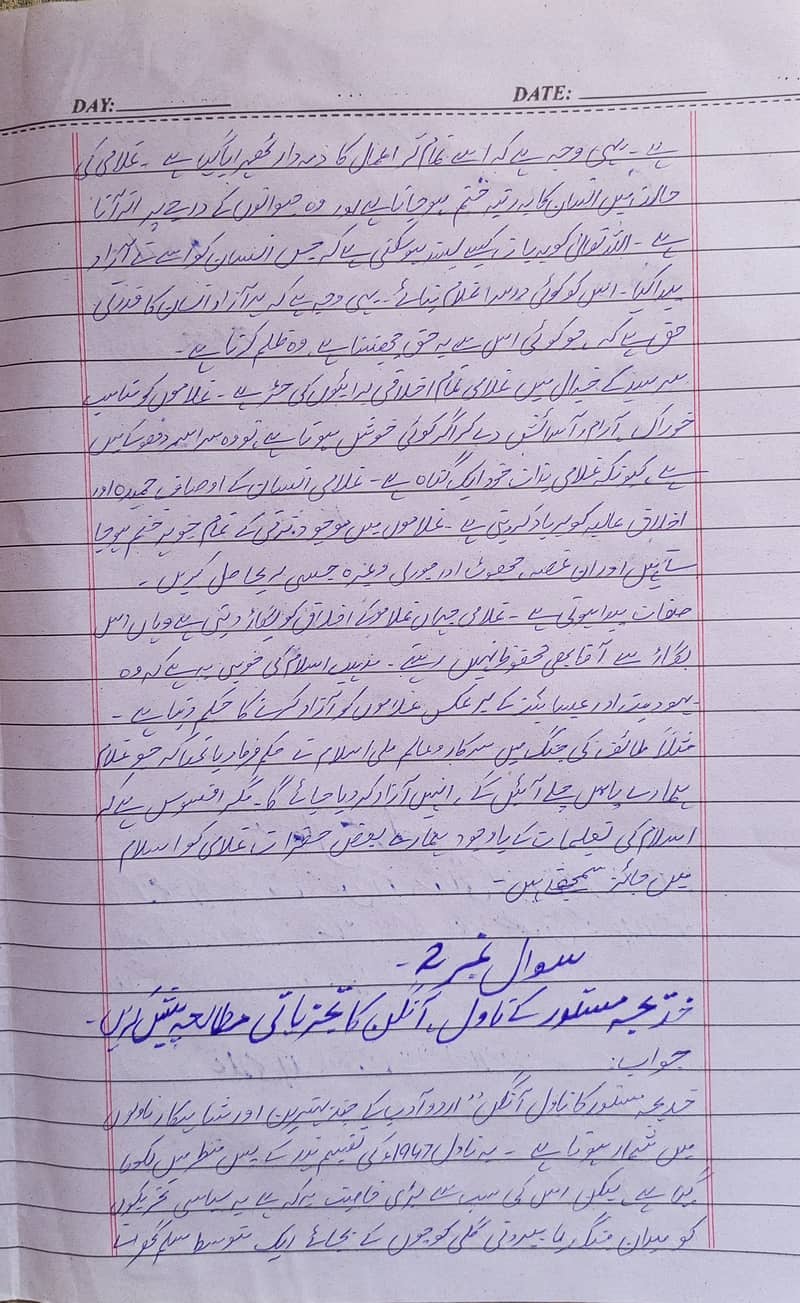 DAY: DATE:
ہے۔ یہی وجہ ہے کہ اسے تمام تر اعمال کا ذمہ دار ٹھہرایا گیا ہے۔ غلامی کی
حالت میں انسان کا یہ رتبہ ختم ہو جاتا ہے اور وہ حیوانوں کے درجے پر اتر آتا
ہے۔ اللہ تعالیٰ کو یہ بات کیسے پسند ہو سکتی ہے کہ جس انسان کو اس نے آزاد
پیدا کیا۔ اس کو کوئی دوسرا غلام بنائے۔ یہی وجہ ہے کہ یہ آزاد انسان کا قدرتی
حق ہے کہ جو کوئی اس سے یہ حق چھینتا ہے، وہ ظلم کرتا ہے۔
سرسید کے خیال میں غلامی تمام اخلاقی برائیوں کی جڑ ہے۔ غلاموں کو مناسب
خوراک، آرام، آسائش دے کر اگر کوئی خوش ہوتا ہے، تو وہ سراسر دھوکا میں
ہے، کیونکہ غلامی بذات خود ایک گناہ ہے۔ غلامی انسان کے اوصاف حمیدہ اور
اخلاق عالیہ کو برباد کر دیتی ہے۔ غلاموں میں موجود ترقی کے تمام جذبے ختم ہو جا
تے ہیں اور ان غصہ، جھوٹ اور چوری وغیرہ جیسی حاصل کریں۔
صفات پیدا ہوتی ہے۔ غلامی جہاں غلاموں کے اخلاق کو بگاڑ دیتی ہے وہاں اس
بگاڑ سے آقا بھی محفوظ نہیں رہتے۔ مذہب اسلام کی خوبی یہ ہے کہ وہ
یہودیت اور عیسائیت کے برعکس غلاموں کو آزاد کرنے کا حکم دیتا ہے۔
مثلاً طائف کی جنگ میں سرکار دو عالم نے حکم فرما دیا تھا کہ جو غلام
ہمارے پاس چلے آئیں گے، انہیں آزاد کر دیا جائے گا۔ مگر افسوس ہے کہ
اسلام کی تعلیمات کے باوجود ہمارے بعض حضرات غلامی کو اسلام
میں جائز سمجھتے ہیں۔
سوال نمبر 2۔
خدیجہ مستور کے ناول آنگن کا تجزیاتی مطالعہ پیش کریں۔
جواب:
خدیجہ مستور کا ناول "آنگن" اردو ادب کے چند بہترین اور شاہکار ناولوں
میں شمار ہوتا ہے۔ یہ ناول 1947ء کی تقسیم ہند کے پس منظر میں لکھا
گیا ہے، لیکن اس کی سب سے بڑی خاصیت یہ کہ ہے یہ سیاسی تحریکوں
کو میدان جنگ یا بیرونی گلی کوچوں کے بجائے ایک متوسط مسلم گھرانے